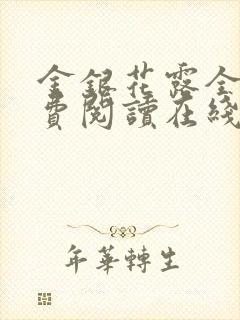 金銀花露全
費閱讀在綫
年華轉生